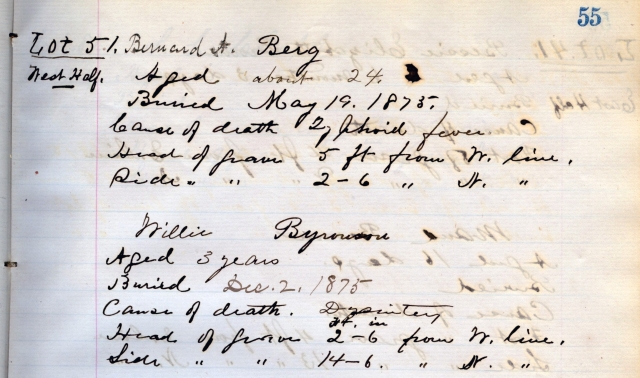 55
Lot 51. Bernard A. Berg
West Half. Aged about 24.
Buried May 19. 1875.
Cause of death Typhoid fever
Head of grave 5 ft from W. line,
Side " " 2-6 " N. "
Willie Byronson
Aged 3 years
Buried Dec. 2, 1875
Cause of death. Dysintery
ft. in
Head of grave 2-6 from W. line,
Side " " 14-6. " N. "